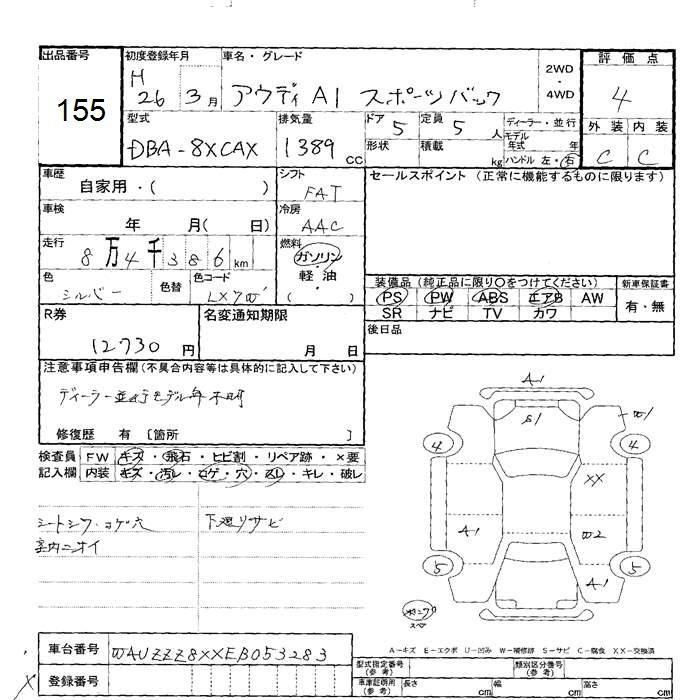 出品番号
155
初度登録年月
H 26 3月
車名・グレード
アウディ A1 スポーツバック
2WD
4WD
評価点
4
外装 内装
C C
型式
DBA-8XCAX
排気量
1389 cc
ドア 5
定員 5 人
形状
積載 kg
ディーラー・並行
モデル年式 年
ハンドル 左・右
車歴
自家用・( )
シフト
FAT
セールスポイント (正常に機能するものに限ります)
車検
年 月( 日)
冷房
AAC
走行
8万4千386km
燃料
ガソリン
軽・油
( )
色
シルバー
色替
色コード
LX7W
装備品 (純正品に限り○をつけてください)
PS PW ABS エアB AW
SR ナビ TV カワ
新車保証書
有・無
後日品
R券
12730 円
名変通知期限
月 日
注意事項申告欄(不具合内容等は具体的に記入して下さい)
ディーラー並行モデル年不明
修復歴 有 [箇所 ]
検査員 FW キズ・飛石・ヒビ割・リペア跡・×要
記入欄 内装 キズ・汚レ・コゲ・穴・スレ・キレ・破レ
シートシワ・コゲ穴
室内ニオイ
下廻りサビ
A1
S1
W1
4
4
XX
A1
W2
5
5
A1
スペア
A-キズ E-エクボ U-凹み W-補修跡 S-サビ C-腐食 XX-交換済
車台番号
WAUZZZ8XXEB053283
登録番号
型式指定番号
(参考)
類別区分番号
(参考)
車庫証明用
(参考)
長さ cm
幅 cm
高さ cm